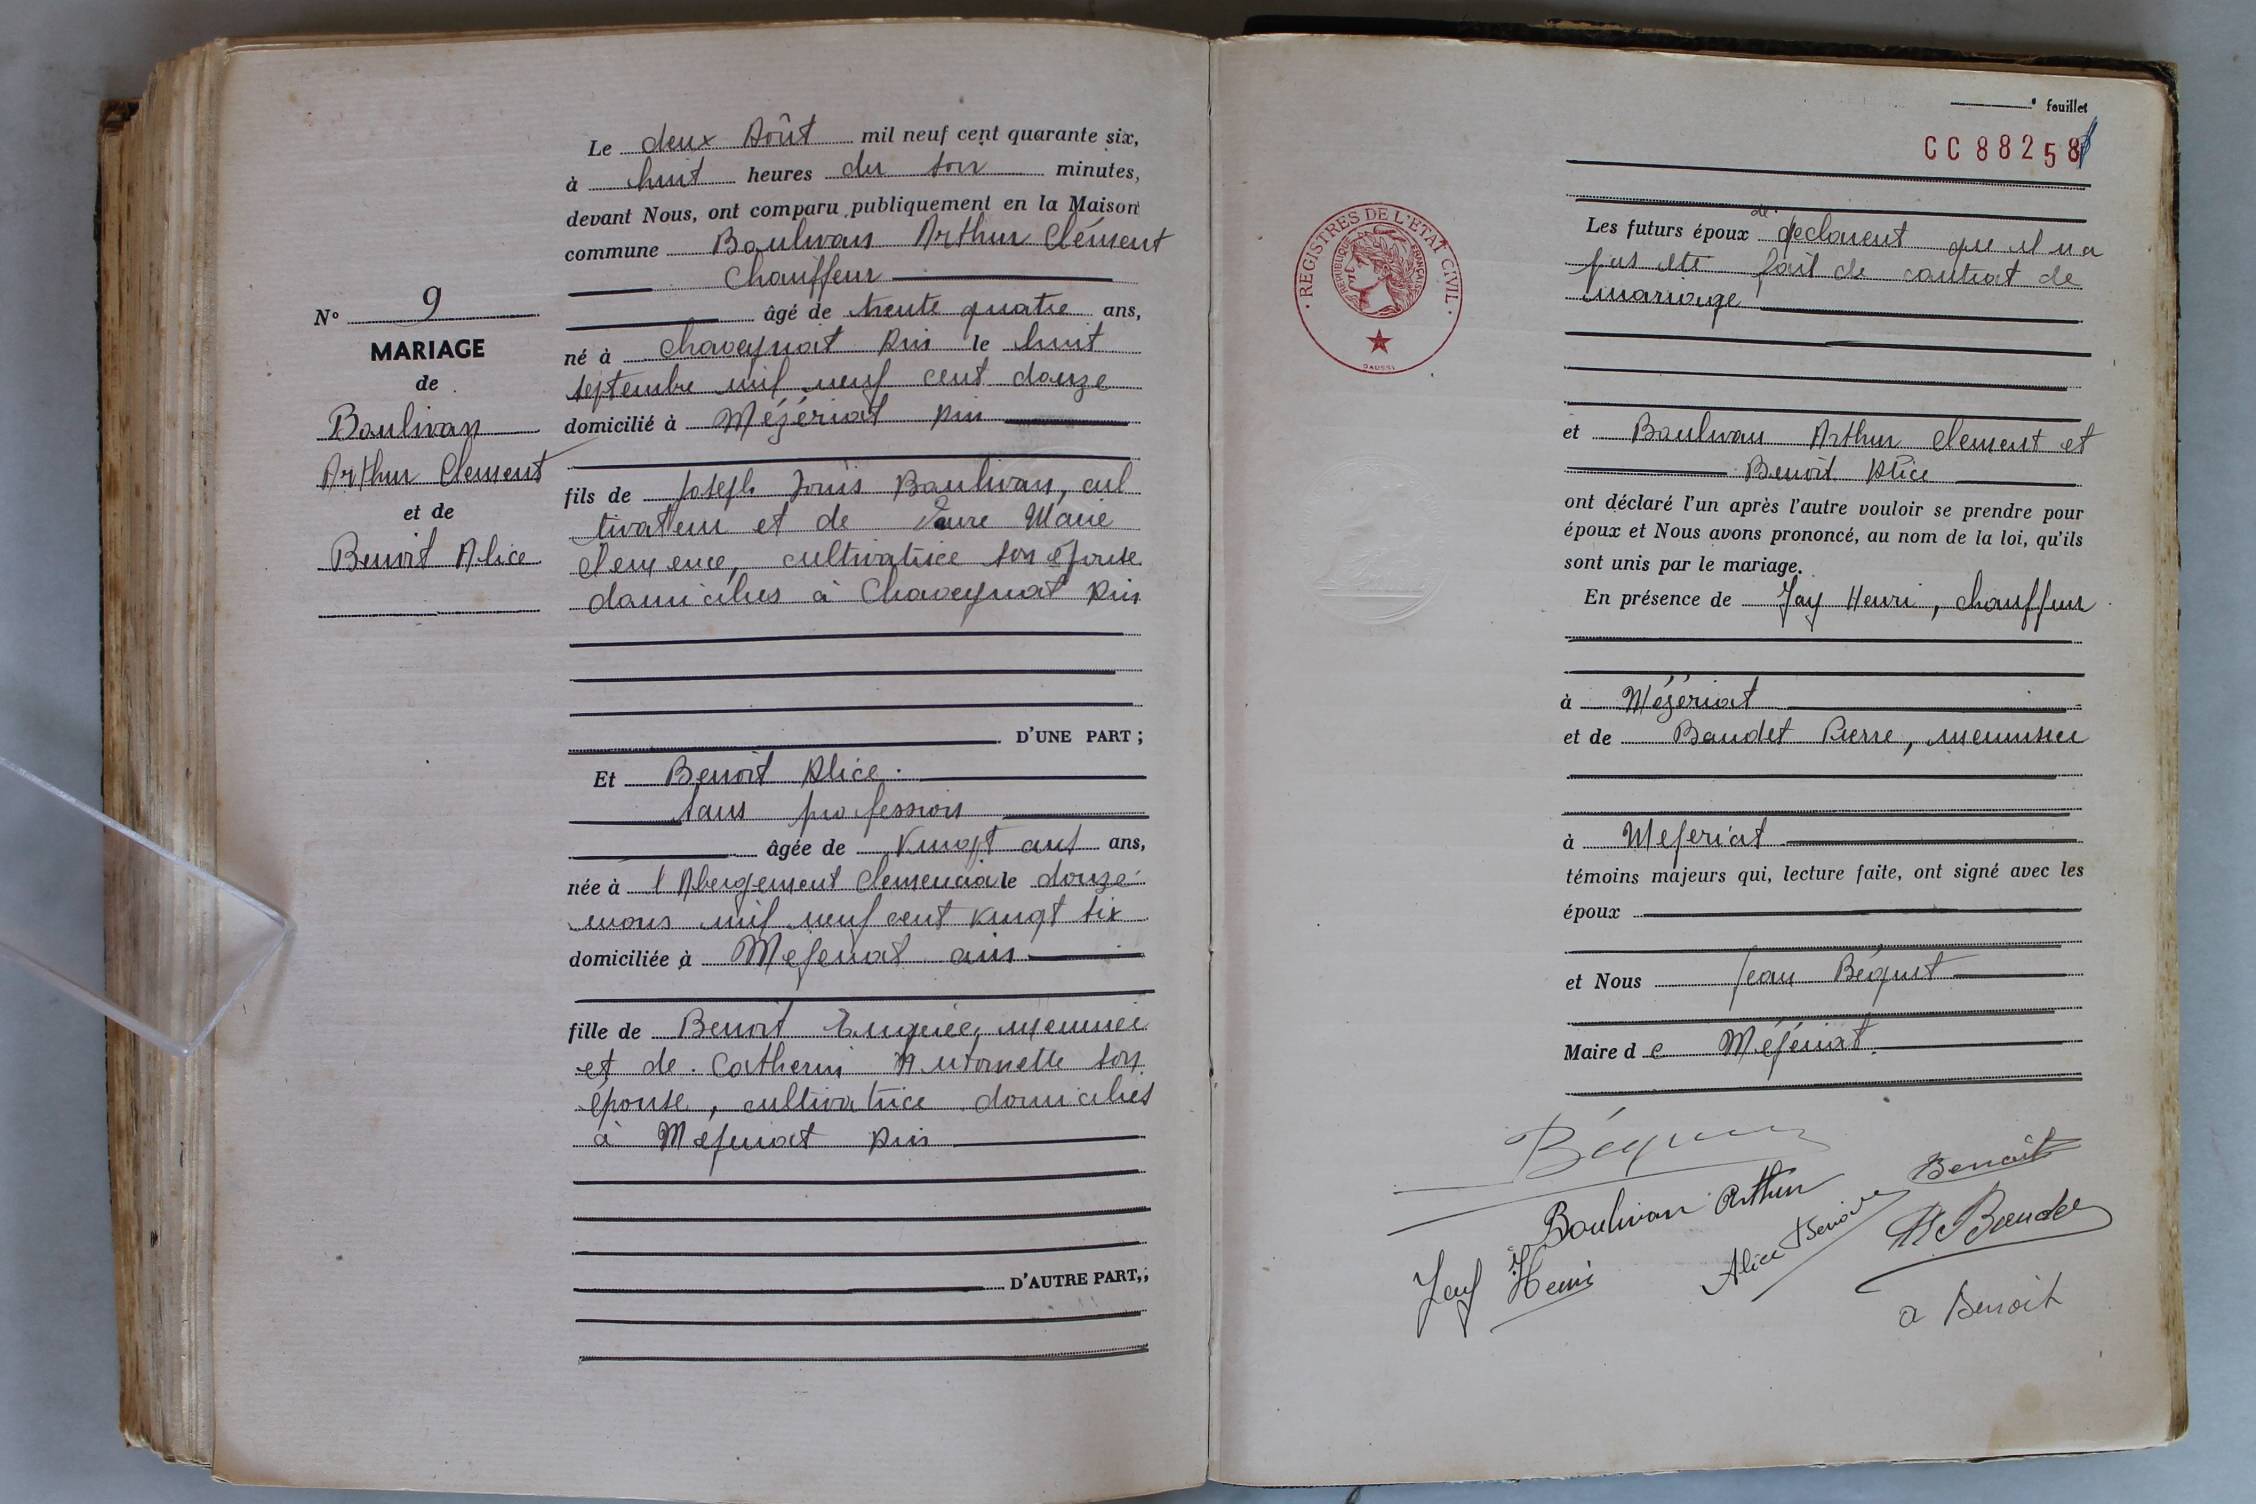 Le deux Août mil neuf cent quarante six,
à huit heures du soir minutes,
devant Nous, ont comparu publiquement en la Maison
commune Boulivan Arthur Clément
Chauffeur
âgé de trente quatre ans,
né à Chaveyriat Ain le huit
septembre mil neuf cent douze
domicilié à Mézériat Ain
fils de Joseph Louis Boulivan, cul
tivateur et de Marie
Clemence, cultivatrice son épouse
domiciliés à Chaveyriat Ain
D'UNE PART ;
N° 9
MARIAGE
de
Boulivan
Arthur Clement
et de
Benoit Alice
Et Benoit Alice.
sans profession
âgée de vingt ans ans,
née à l'Abergement Clemencia le douze
mars mil neuf cent vingt six
domiciliée à Meseriat ain
fille de Benoit meunier
et de Catherin Antoinette son
épouse, cultivatrice domiciliés
à Meseriat Ain
D'AUTRE PART,;
fouillet
CC 88258
REGISTRES DE L'ETAT CIVIL
REPUBLIQUE FRANÇAISE
DAUSSI
Les futurs époux declarent que il n a
pas ete fait de contrat de
mariage
et Boulivan Arthur Clement et
Benoit Alice
ont déclaré l'un après l'autre vouloir se prendre pour
époux et Nous avons prononcé, au nom de la loi, qu'ils
sont unis par le mariage.
En présence de Jay Henri, chauffeur
à Mézériat
et de Baudet Pierre, menuisier
à Meseriat
témoins majeurs qui, lecture faite, ont signé avec les
époux
et Nous Jean Béquet
Maire de Méseriat.
Boulivan Arthur
Benoit
Jay Henri
Alice Benoit
Baudet
a Benoit